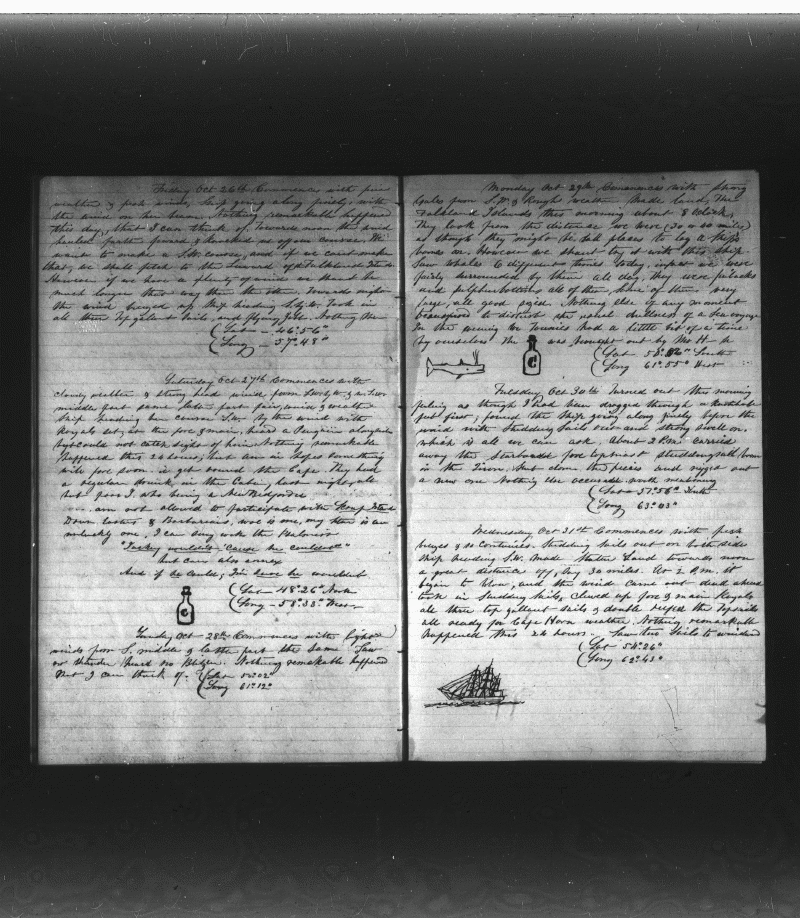 Friday Oct 26th Commences with fine
weather & fresh winds, Ship going along finely, with
the wind on her beam. Nothing remarkable happened
this day, that I can think of. Towards noon the wind
hauled further forward & knocked us off our course. We
want to make a S.W. course, and if we cannot make
that, we shall fetch to the Leeward of Falkland Islands
However if we have a plenty of wind we
much longer this way than the other. Towards night
the wind breezed up Ship heading S by W. Took in
all three Top galant Sails, and flying Jib. Nothing More
(Lat - 46°56"
(Long - 57°48"
Saturday Oct 27th Commences with
cloudy weather & strong head winds from
middle part same, later part fair, winds & weather
Ship heading her course S.W. by the wind with
Royals set, on the fore & main, heard a Penguin alongside
but could not catch sight of him. Nothing remarkable
happened this 24 hours, but am in hopes something
will for soon. is get round the Cape. They had
a regular drunk, in the Cabin, last night, all
but poor I. who being a New Bedforder
am not allowed to participate with
Down Easters & Barbarians, woe is me, my stars is an
unlucky one, I can say with the
"Jackey wouldent cause he couldent"
but can also annex
And if he could, I'm he wouldent
(Lat - 48°26" North
(Long - 58°33" West
Sunday Oct - 28th Commences with light
winds from S. middle & latter part the same. Saw
no thunder heard no . Nothing remarkable happened
that I can think of. (Lat 50°02"
(Long 61°12"
Monday Oct 29th Commences with strong
Gales from S.W. & Rought weather Made land, The
Falkland Islands this morning about 8 Oclock,
They look from the distance we were (30 or 40 miles)
as though they might be tall places to lay a Ships
bones on. However we shant try it with this Ship
Saw Whales 6 different times today, infact we were
fairly surrounded by them all day, they were finbacks
and sulphurbottoms all of them, some of them very
large, all good sized. Nothing else of any moment
transpired to disturb the usual dullness of a Sea voyage
In the evening We Townies had a little bit of a time
by ourselves The was brought out by Mr H
(Lat - South
(Long - 61°55" West
C
Tuesday Oct 30th Turned out this morning
feeling as though I had been dragged through a Knothole
feet first, found the Ship going along finely before the
wind with Studding Sails out and strong swell on,
which is all we can ask. About 2 P.M. carried
away the Starboard fore topmast studdingsail boom
in the Iron. Put down the pieces and rigged out
a new one Nothing else occured worth
(Lat - 51°56" South
(Long 63°03"
Wednesday Oct 31st Commences with fresh
breezes & so Continues. Studding Sails out on both sides
Ship heading S.W. Made Staten Land towards noon
a great distance off, say 30 miles. At 2 P.M. it
began to blow, and the wind came out dead ahead
took in Studding Sails, clewed up fore & main Royals
all three top gallant Sails & double reefed the Topsails
all ready for Cape Horn weather. Nothing remarkable
happened this 24 hours. Saw two Sails to windward
(Lat 54°26"
(Long 62°43"
C